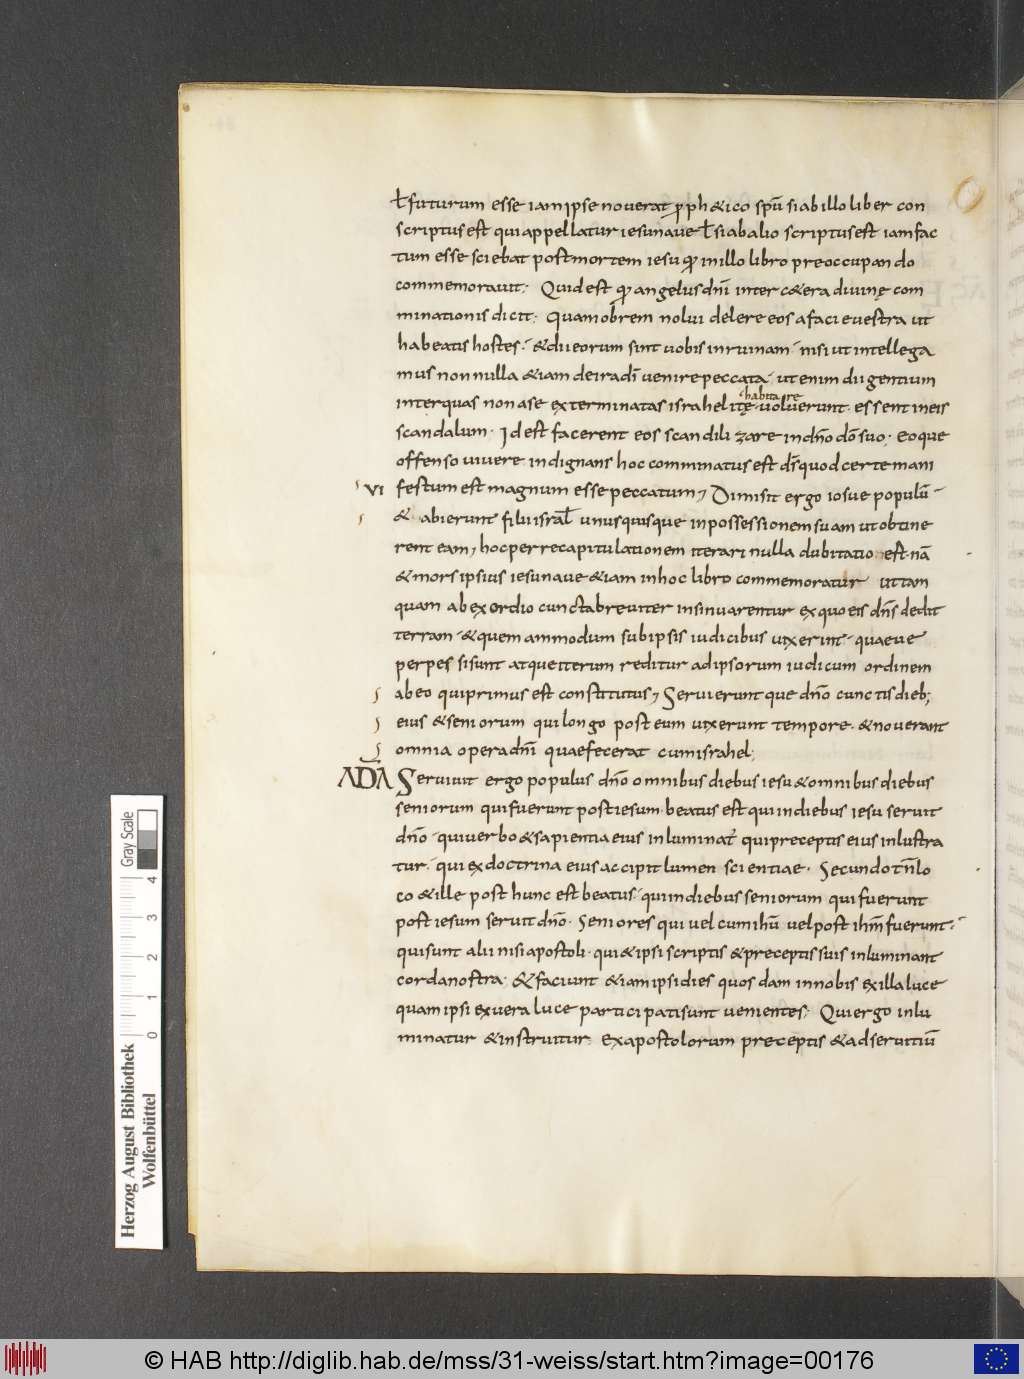 ł futurum esse iam ipse noverat ꝓph&ico spū si ab illo liber con
scriptus est qui appellatur iesu nave ł si ab alio scriptus est iam fac
tum esse sciebat post mortem iesu ꝙ in illo libro preoccupando
commemoravit; Quid est ꝙ angelus dn̄i inter c&era divinę com
minationis dicit; Quamobrem nolui delere eos a facie vestra ut
habeatis hostes; & dii eorum sint vobis in ruinam nisi ut intellega
mus nonnulla &iam de ira dī venire peccata ut enim dii gentium
inter quas non a se exterminatas israhelitę
habitare
voluerunt essent in eis
scandalum. Id est facerent eos scandilizare in dn̄o dō suo, eoque
offenso vivere indignans hoc comminatus est ds̄ quod certe mani
VI festum est magnum esse peccatum; Dimisit ergo iosue populū
& abierunt filii isrāl unusquisque in possessionem suam ut obtine
rent eam; hoc per recapitulationem iterari nulla dubitatio est. nā
& mors ipsius iesu nave &iam in hoc libro commemoratur ut tam
quam ab exordio cuncta breviter insinuarentur ex quo eis dn̄s dedit
terram & quem ammodum sub ipsis iudicibus vixerint quaeve
perpessi sunt atque iterum reditur ad ipsorum iudicum ordinem
ab eo qui primus est constitutus; Servieruntque dn̄o cunctis dieb;
eius & seniorum qui longo post eum vixerunt tempore. & noverant
omnia opera dn̄i quae fecerat cum israhel;
ADA Servivit ergo populus dn̄o omnibus diebus iesu & omnibus diebus
seniorum qui fuerunt post iesum. beatus est qui in diebus iesu servit
dn̄o qui verbo & sapientia eius inluminat̄ qui preceptis eius inlustra
tur. qui ex doctrina eius accipit lumen scientiae. Secundo tn̄ lo
co & ille post hunc est beatus qui in diebus seniorum qui fuerunt
post iesum servit dn̄o. Seniores qui vel cum ihū vel post ihm̄ fuerunt;
qui sunt alii nisi apostoli. qui & ipsi scriptis & preceptis suis inluminant
corda nostra & faciunt &iam ipsi dies quosdam in nobis ex illa luce
quam ipsi ex vera luce participati sunt venientes; Qui ergo inlu
minatur & instruitur ex apostolorum preceptis & ad servitiū
Gray Scale
4 3 2 1 0
Herzog August Bibliothek
Wolfenbüttel
© HAB http://diglib.hab.de/mss/31-weiss/start.htm?image=00176